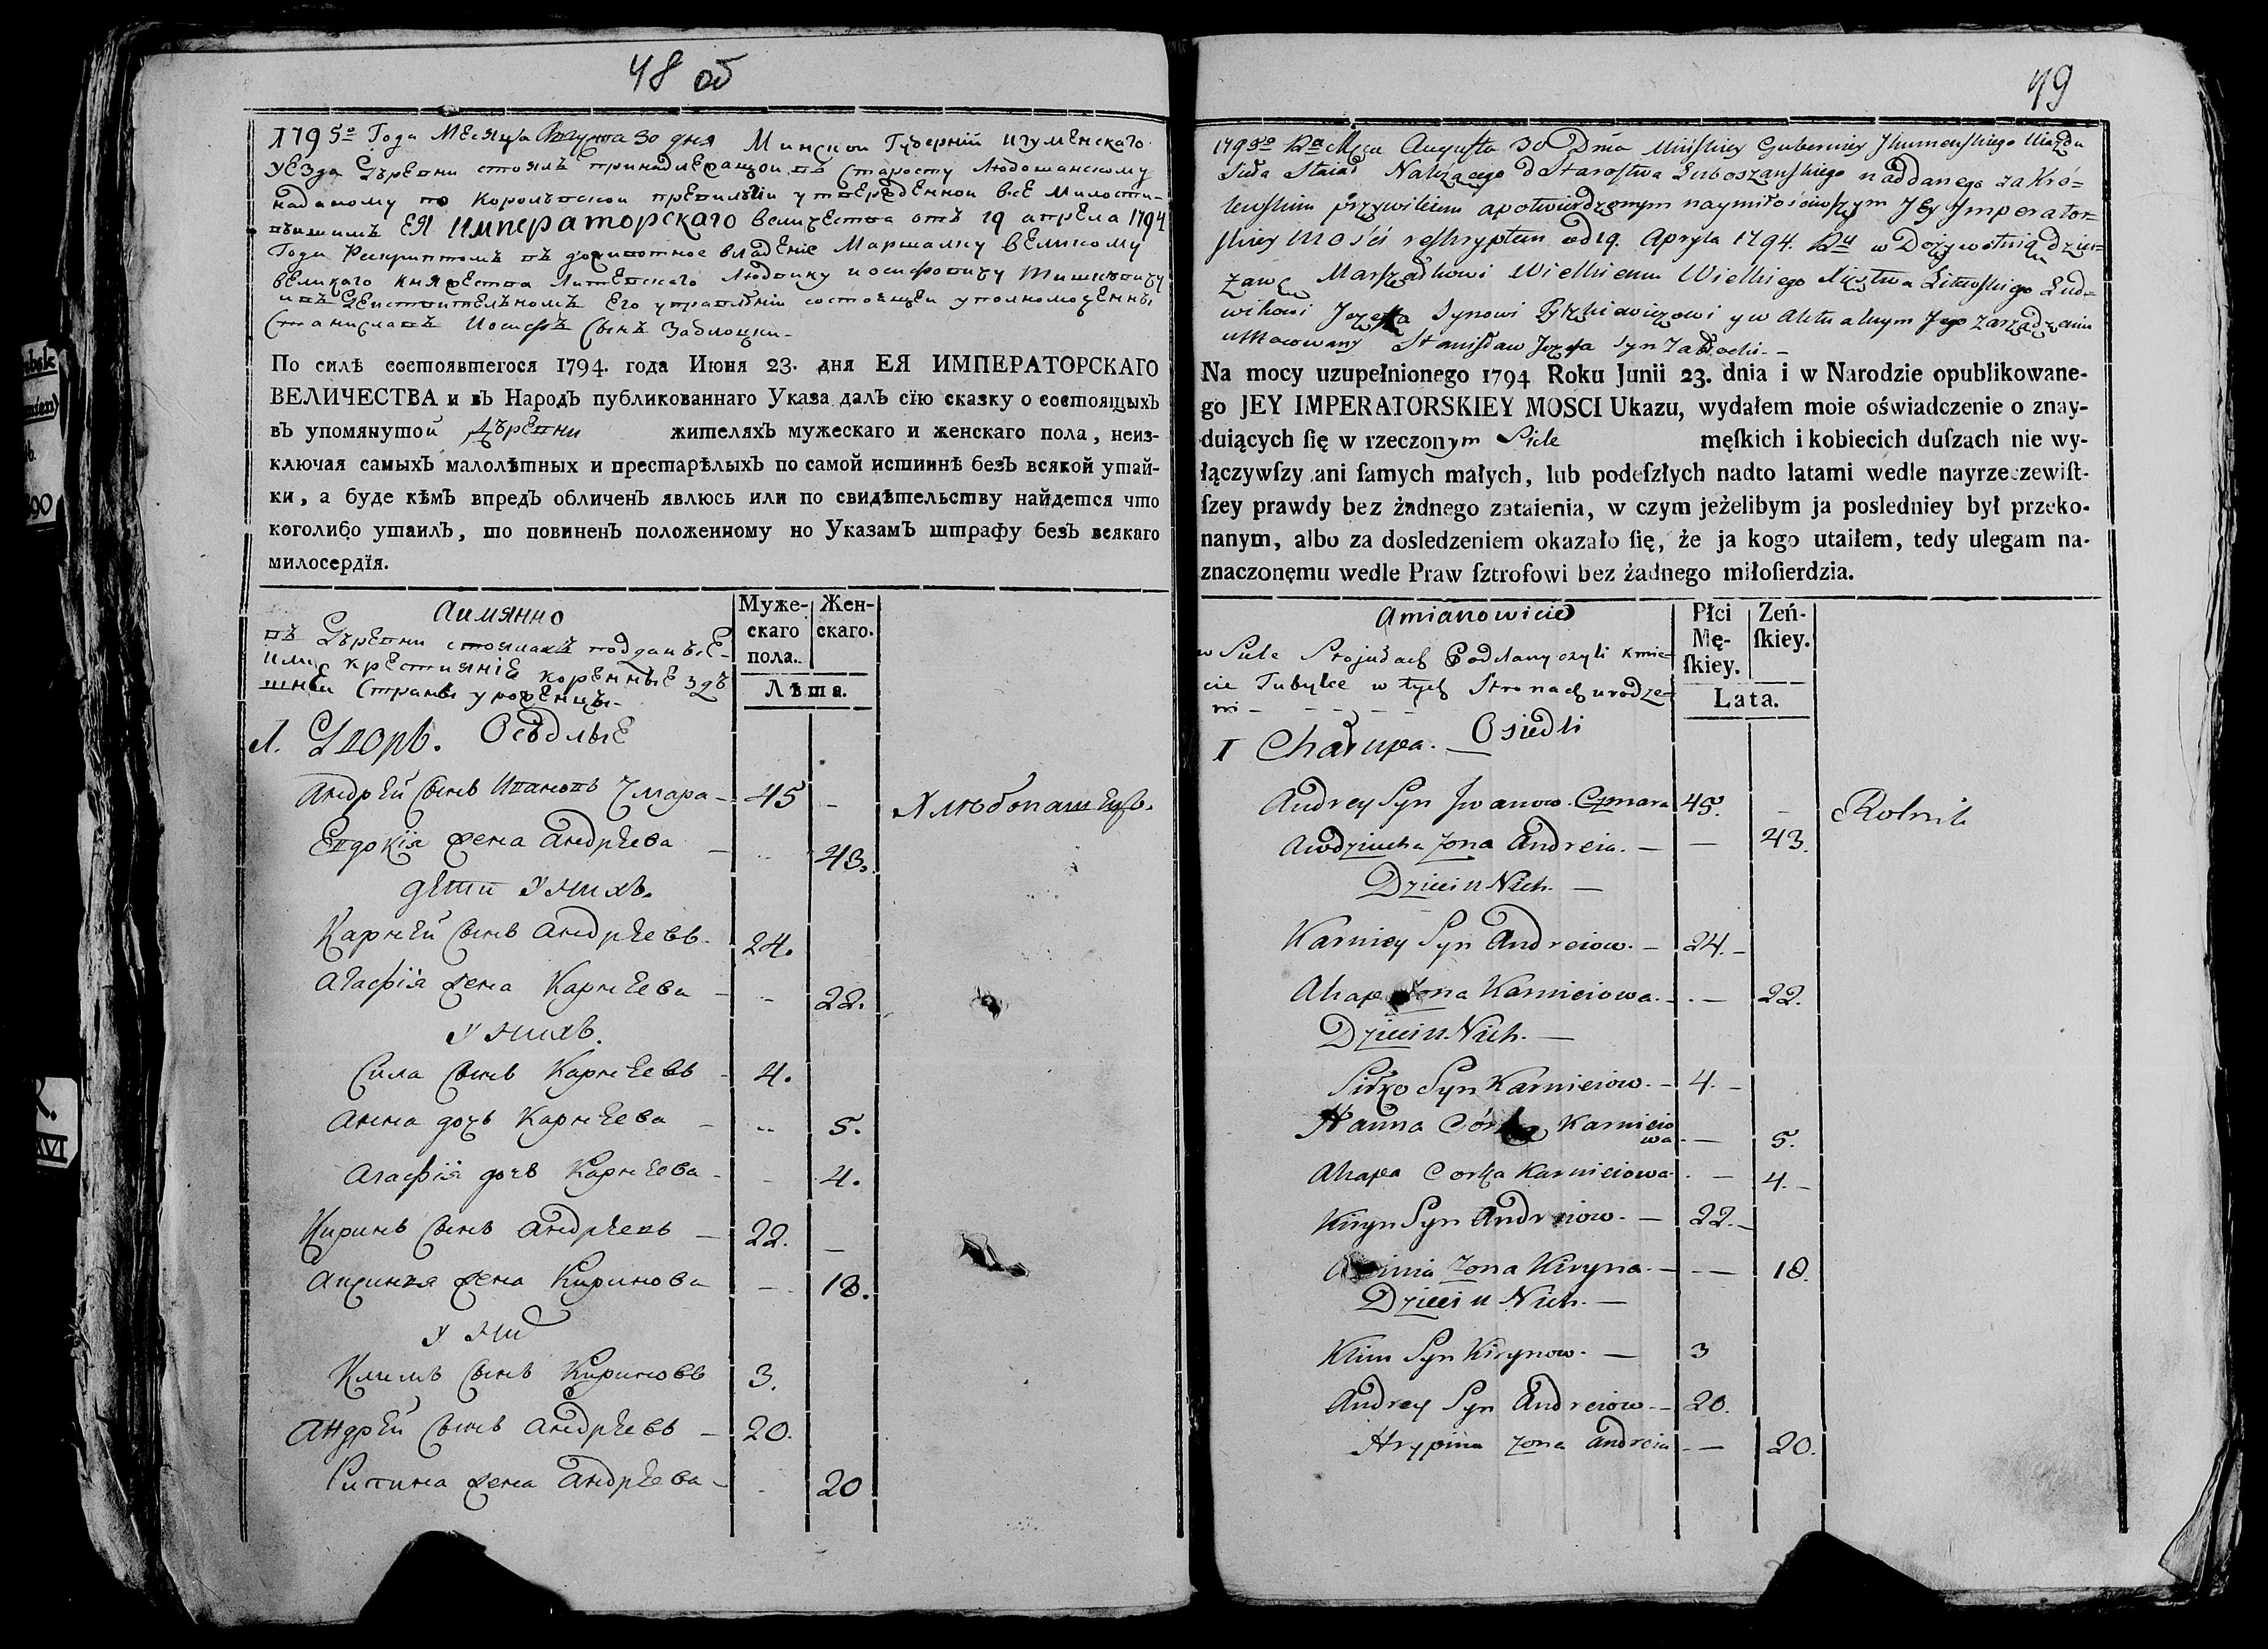 48 об
1795го Года Месяца Августа 30 дня Минской Губерніи Игуменскаго
уезда принадлежащой Старосту Любошанскому
наданому по Королевской привилѣи утвержденной все милости-
ЕЯ Императорскаго величества отъ 19 апрела 1794
Года владеніе Маршалку великому
великаго княжества Литевскаго Людвику иосифовичу Тишкевичу
его управленіи состоящей уполномоченны
Станиславъ Иосифъ Сынъ Заблоцки
По силѣ состоявшегося 1794. года Июня 23. дня ЕЯ ИМПЕРАТОРСКАГО
ВЕЛИЧЕСТВА и въ Народъ публикованнаго Указа далъ сїю сказку о состоящыхъ
въ упомянутой Дѣревни жителяхъ мужескаго и женскаго пола, неиз-
ключая самыхъ малолѣтных и престарѣлыхъ по самой истиннѣ безъ всякой утай-
ки, а буде кѣмъ впредъ обличенъ явлюсь или по свидѣтельству найдется что
коголибо утаилъ, то повиненъ положенному но Указамъ штрафу безъ всякаго
милосердїя.
Аимянно
въ Дѣревни подданые
или крестияніе коренные здѣ
шней Страны уроженцы-
Муже-
скаго
пола.
Жен-
скаго.
Лѣта.
1. Дворъ. Осѣдлые
Андрей Сынъ Ивановъ Чмара - 45 -
Хлѣбопашецъ.
Евдокія жена Андрѣева - 43.
дети У нихъ.
Карней Сынъ Андрѣевъ 24.
Агафія жена Карнѣева - 22.
У нихъ.
Сила Сынъ Карнѣевъ - 4.
Анна дочь Карнѣева - 5.
Агафія дочь Карнѣева - 4.
Киринъ Сынъ Андрѣевъ - 22. -
жена Киринова - 18.
У них
Климъ Сынъ Кириновъ 3.
Андрей Сынъ Андрѣевъ - 20.
жена Андрѣева - 20
49
1795go Ru Mca Augusta 30 Dnia Minskiey Guberniey Jhumenskiego Uiazdu
Siła Należącego do Starostwa Luboszanskiego naddanego za Kró=
lewskim przywileiem apotwierdzonym naymiłościwszym Jey Jmperator=
skiey Mości reskryptem od 19. Apryla 1794. Ru w Dożywotnią dzier=
zawę Marszałkowi Wielkiemu Wielkiego Xięstwa Litewskiego Lud=
wikowi Jozefa Synowi Tyszkiewiczowi y w Aktualnym Jego zarządzeniu
umocowany Stanisław Jozefa Syn Zabłocki. -
Na mocy uzupełnionego 1794 Roku Junii 23. dnia i w Narodzie opublikowane-
go JEY IMPERATORSKIEY MOSCI Ukazu, wydałem moie oświadczenie o znay-
duiących ſię w rzeczonym Siele męſkich i kobiecich duſzach nie wy-
łączywſzy ani ſamych małych, lub podeſzłych nadto latami wedle nayrzeczewiſt-
ſzey prawdy bez żadnego zataienia, w czym jeżelibym ja posledniey był przeko-
nanym, albo za dosledzeniem okazało ſię, że ja kogo utaiłem, tedy ulegam na-
znaczonęmu wedle Praw ſztrofowi bez żadnego miłoſierdzia.
Amianowicie
w Siele Poddany czyli kmie=
cie Tubylce w tych Stronach urodze=
ni - - - - -
Płci
Mę-
ſkiey.
Zeń-
ſkiey.
Lata.
I Chałupa. - Osiedli
Andrey Syn Jwanow. Czmara 45. -
Rolnik
Awdziucha Zona Andreia. - - 43.
Dzieci u Nich. -
Karniey Syn Andreiow. - 24. -
Zona Karnieiowa. - - 22.
Dzieci u Nich. -
Siłko Syn Karnieiow. - 4. -
Hanna Córka Karnieio
wa - - 5.
Ahapa Corka Karnieiowa - - 4. -
Kiryn Syn Andreiow. - 22. -
Zona Kiryna. - - - 18.
Dzieci u Nich. -
Klim Syn Kirynow. - 3
Andrey Syn Andreiow. - 20.
Hrypina Zona Andreia - - 20.